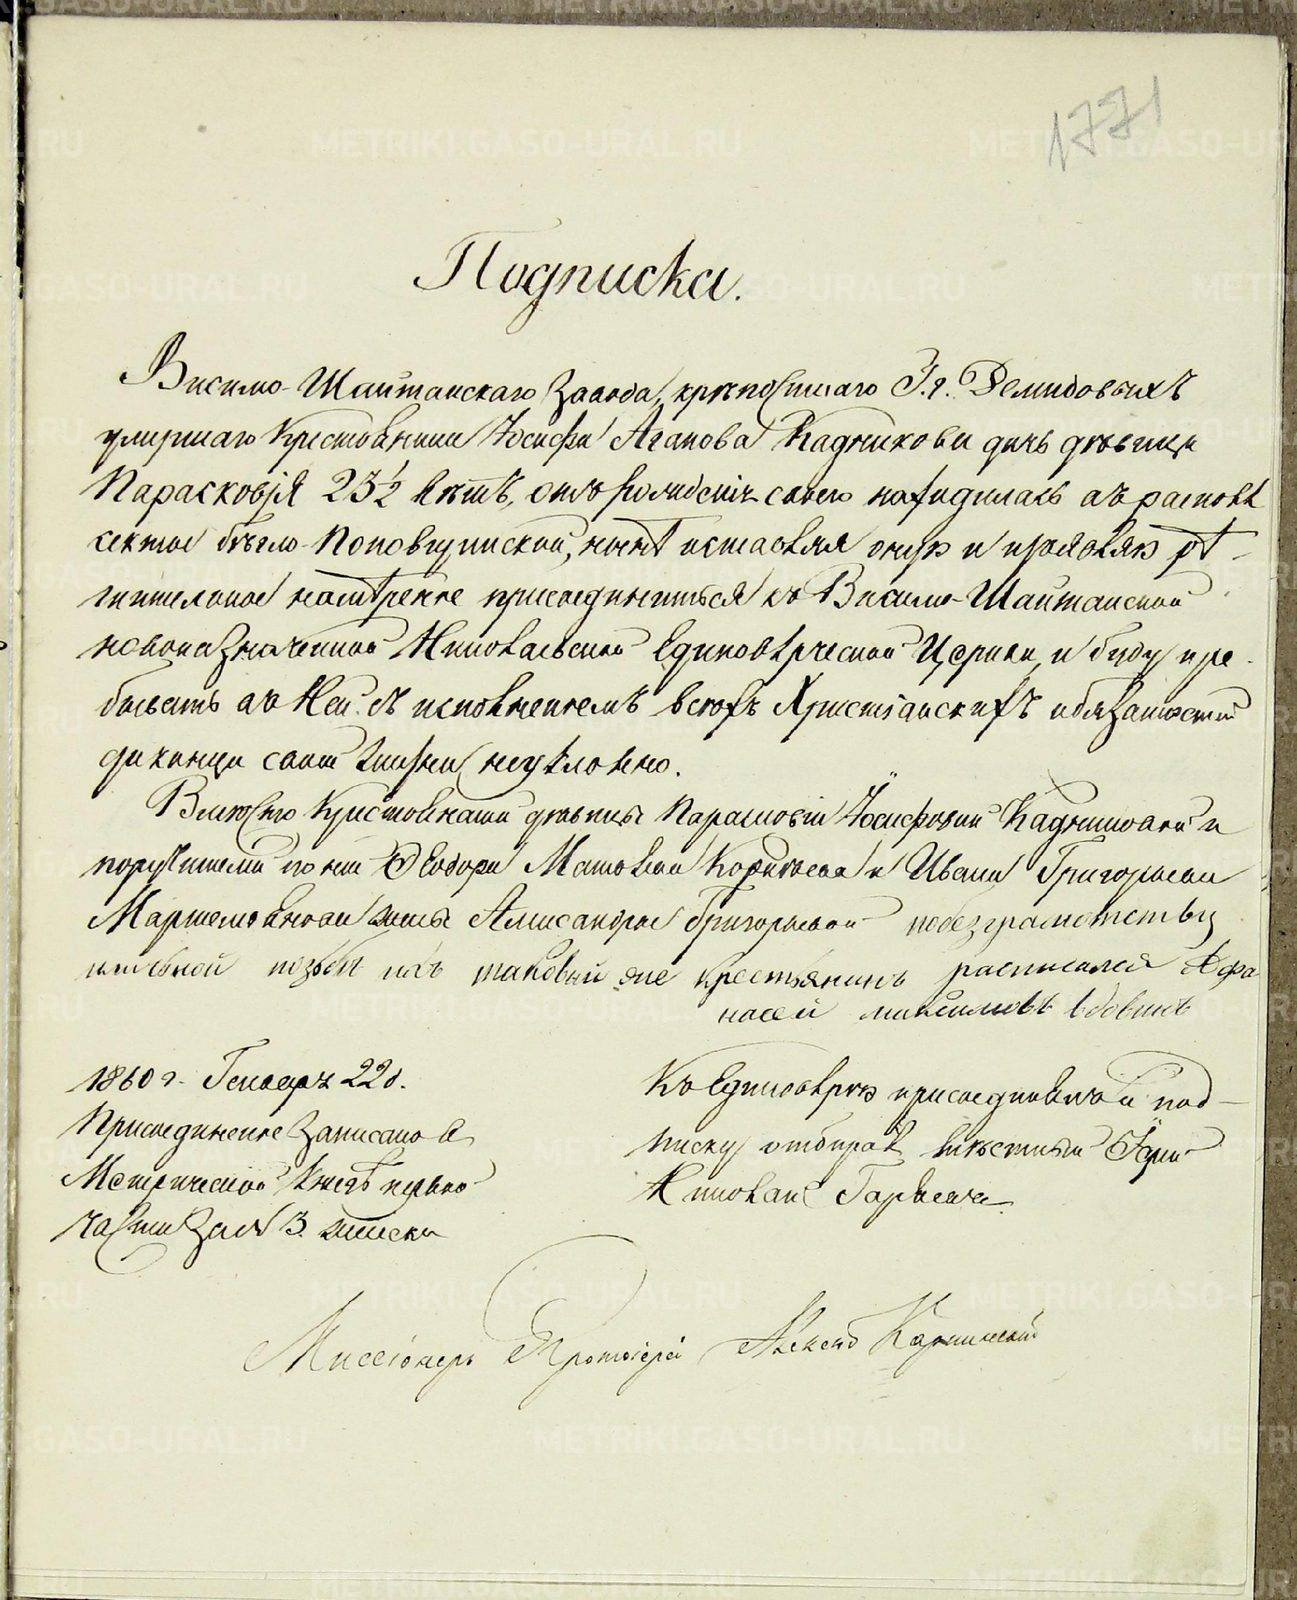 1771
Подписка.
Висимо-Шайтанскаго Завода, крѣпостнаго Г.г. Демидовыхъ
умершаго Крестьянина Іосифа Агапова Кадникова дочь дѣвица
Парасковія 23½ лѣтъ, отъ рожденія своего находилась въ расколѣ
секты бѣгло-Поповщинской, нынѣ оставляя оную и изъявляю рѣ-
шительное намѣреніе присоединиться къ Висимо-Шайтанской
новоназначенной Николаевской Единовѣрческой Церкви, и буду пре-
бывать въ Ней съ исполненіемъ всѣхъ Христіанскихъ обязанностей
до конца своей жизни неуклонно.
Вместо Крестьянской дѣвицы Парасковіи Іосифовой Кадниковой и
поручителей по ней Ѳеодора Матвѣева и Ивана Григорьева
Александры Григорьевой по безграмотству
личной прозьбѣ ихъ таковый же крестьянинъ росписался Афа
насей Максимовъ Вдовинъ
1860 г. Генваря 22 д.
Присоединеніе записано въ
Метрической Книгѣ первой
части за № 3. женска
Къ Единовѣрію присоединялъ и под-
писку отбиралъ мѣстный Іерей
Николай Гаряевъ
Миссіонеръ Протоіерей
METRIKI.GASO-URAL.RU